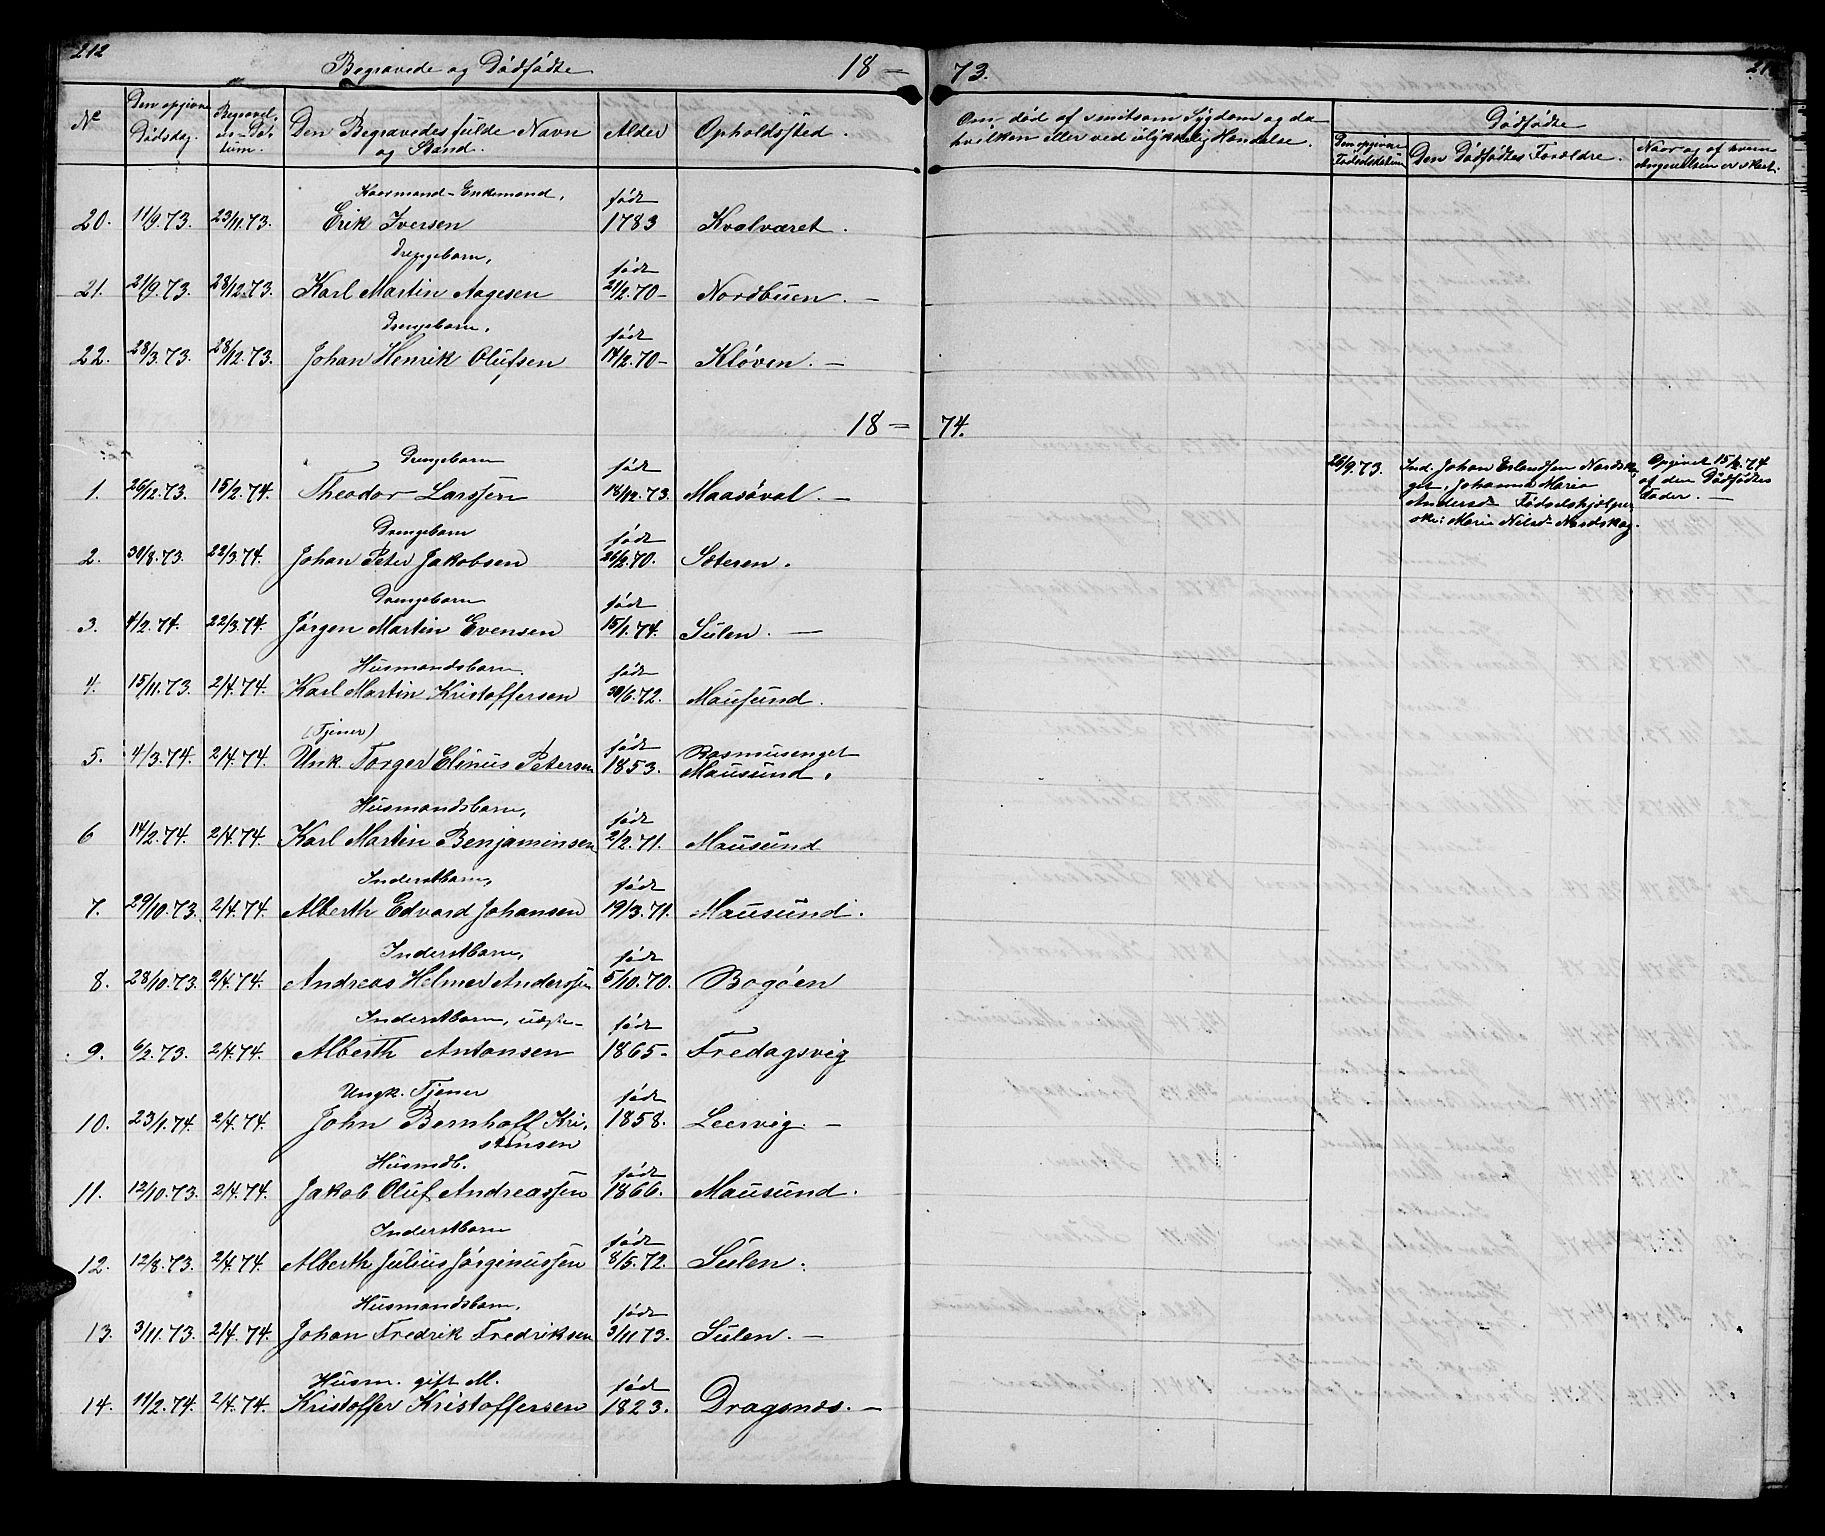 212
Begravede og Dødfødte 18 — 73.
No Den opgivne Dødsdag. Begravelses-Datum. Den Begravedes fulde Navn og Stand. Alder Opholdssted.
Om død af smitsom Sygdom og da hvilken eller ved ulykkelig Hændelse.
Dødfødte
Den opgivne Fødselsdatum Den Dødfødtes Forældre. Naar og af hvem Angivelsen er skeet.
Kaarmand-Enkemand, født
20. 11/9.73. 23/11.73. Erik Iversen 1783 Kvalværet.
Drengebarn, født
21. 21/9.73. 28/12.73. Karl Martin Aagesen 21/2.70- Nordbuen. —
Drengebarn, født
22. 28/3.73. 28/12.73. Johan Henrik Olufsen 14/2.70- Kløven. —
18 — 74.
Drengebarn født
1. 26/12.73. 15/2.74. Theodor Larssen 18/12.73. Maasøval. —
26/9.73. Ind. Johan Erlandsen Nordska-
get, Johanna Maria
Andersd Fødselshjælper
ske: Maria Nilsd. Nordskag.
Opgivet 15/2.74
af den Dødfødtes
Fader. —
Drengebarn født
2. 30/8.73. 22/3.74. Johan Peter Jakobsen 26/2.70. Sæteren.
Drengebarn født
3. 4/2.74. 22/3.74. Jørgen Martin Evensen 15/1.74. Sulen. —
Husmandsbarn født
4. 15/11.73. 2/4.74. Karl Martin Kristoffersen 30/6.72. Mausund.
(Tjener) født Rasmusenget
5. 4/3.74. 2/4.74. Unk. Torger Elinius Petersen 1853. Mausund.
Husmandsbarn, født
6 14/2.74. 2/4.74. Karl Martin Benjaminsen 2/2.71. Mausund
Inderstbarn, født
7. 29/10.73. 2/4.74. Alberth Edvard Johansen 19/3.71. Mausund.
Inderstbarn, født
8. 28/10.73. 2/4.74. Andreas Helmer Anderssen 5/10.70. Bogøen
Inderstbarn, uægte- født
9. 6/2.73. 2/4.74. Alberth Antonsen 1865- Fredagsvig
Ungk. Tjener født
10. 23/1.74. 2/4.74. John Bernhoff Kri- 1858. Leervig. —
stensen
Husmdb. født
11. 12/10.73. 2/4.74. Jakob Oluf Andreassen 1866. Mausund.
Inderstbarn født
12. 12/8.73. 2/4.74. Alberth Julius Jørginussen 8/5.72. Sulen.
Husmandsbarn, født
13. 3/11.73. 2/4.74. Johan Fredrik Fredriksen 3/11.73. Sulen. —
Husm. gift M. født
14. 11/2.74. 2/4.74. Kristoffer Kristoffersen 1823. Dragsnæs. —